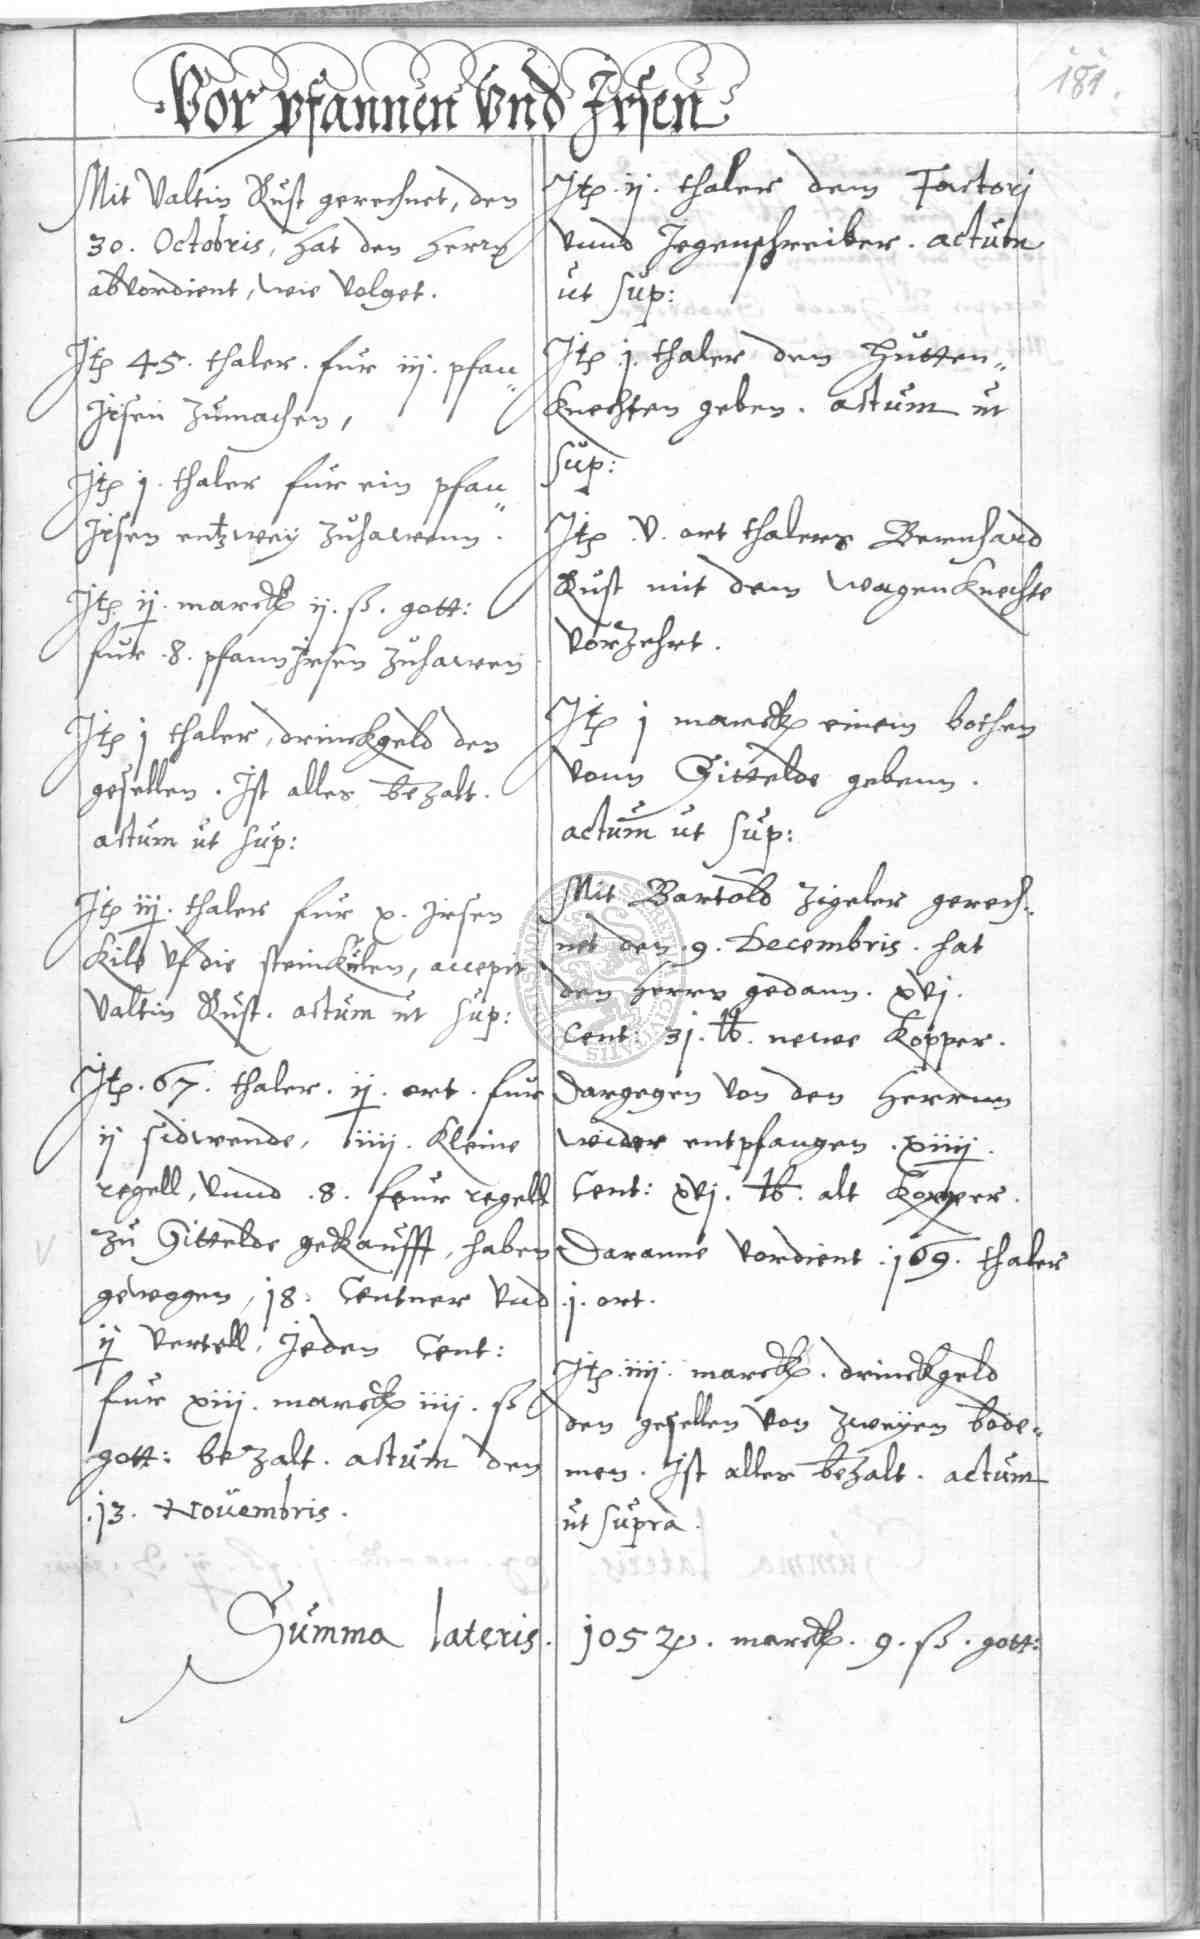 Vor pfannen Vnd Irsen
181.
Mit Valtin Rust gerechnet, den
30. Octobris, hat den Herrn
abvordient, wie volget.
Itp 45. thaler. fur iij. pfan„
Irsen zumachen,
Itp j. thaler fur ein pfan„
Irsen entzwey zuhawenn.
Itp ij. marck ij. ß. gott:
fur .8. pfann Irsen zuhawen
Itp j thaler, drinckgeld den
gesellen. Ist alles bezalt.
actum ut sup:
Itp iij. thaler fur x. Irsen
Kile vf die steinkulen, accepit
Valtin Rust. actum ut sup:
Itp. 67. thaler. ij. ort. fur
ij sidwende, iiij. Kleine
regell, vnnd .8. feur regell
zu Gittelde gekaufft, haben
gewoggen, 18. Centner vnd
ij vertell, Jeden Cent:
fur xiij. marck iiij. ß
gott: bezalt. actum den
.13. Nouembris.
Itp. ij. thaler dem Factorj
vnnd Jegenschreiber. actum
ut sup:
Itp j. thaler den Hutten„
Knechten geben. actum ut
sup:
Itp .V. ort thalers Bernhard
Rust mit dem wagenknechte
vorzehrt.
Itp j marck einem bothen
vonn Gittelde gebenn.
actum ut sup:
Mit Bartold Zigeler gerech„
net den .9. Decembris. hat
den Herrn gedann. xvj.
Cent: 3j. lb. newe Kopper.
Dargegen von den Herrnn
wider entpfangen .xiiij.
Cent: xvj. lb. alt Kopper.
Daranne vordient .169. thaler
.j. ort.
Itp. iiij. marck. drinckgeld
den gesellen von zweyen bode„
men. Ist alles bezalt. actum
ut supra.
Summa lateris. 1052. marck. 9. ß. gott: